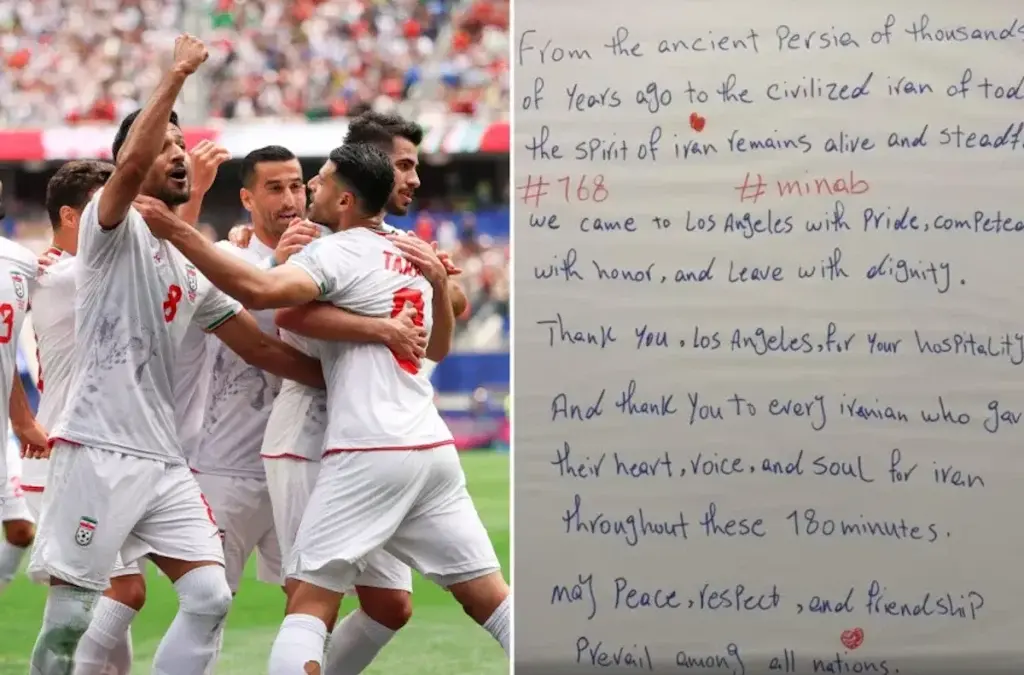 8
From the ancient Persia of thousands
of years ago to the civilized iran of tod
the spirit of iran remains alive and steadf
#168 #minab
we came to Los Angeles with Pride, competed
with honor, and Leave with dignity.
Thank you, Los Angeles, for your hospitality
And thank you to every iranian who gav
their heart, voice, and soul for iran
throughout these 180 minutes.
may Peace, respect, and friendship
Prevail among all nations.